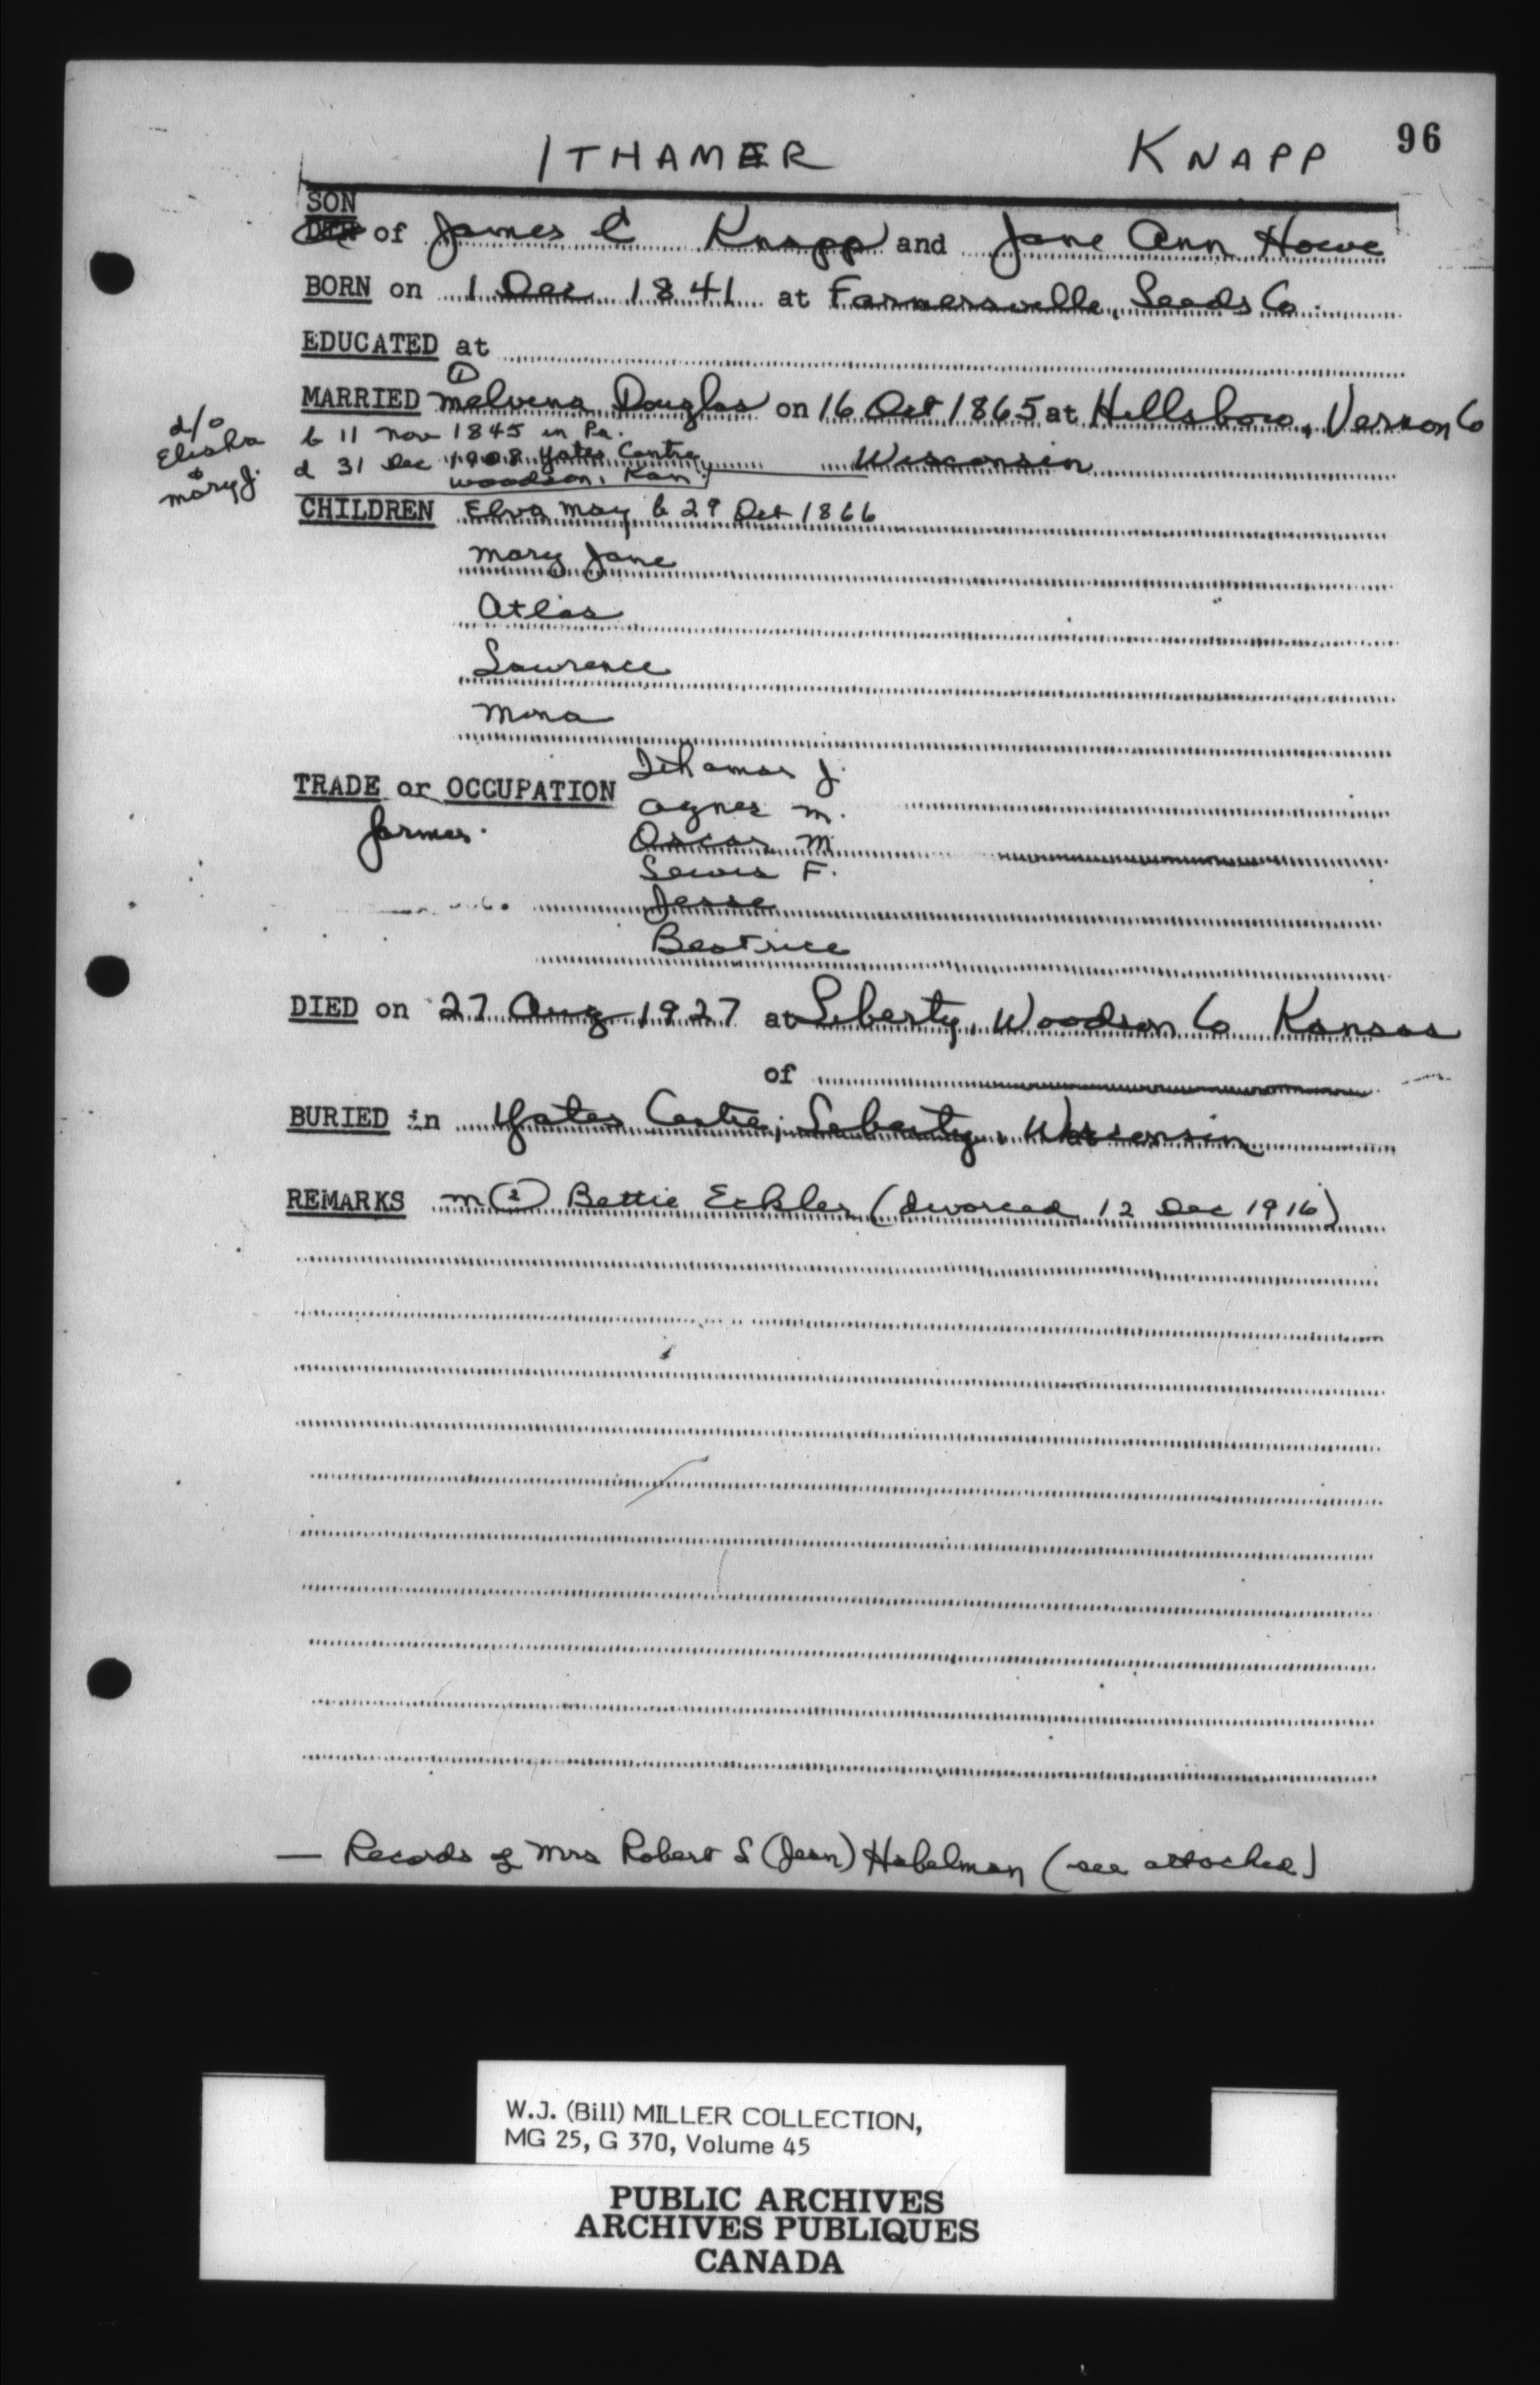 96
ITHAMER KNAPP
SON
of James C Knapp and Jane Ann Howe
BORN on 1 Dec 1841 at Farmersville, Leeds Co.
EDUCATED at
①
MARRIED Melvena Douglas on 16 Oct 1865 at Hillsboro, Vernon Co
d/o
Elisha
&
Mary J.
b 11 Nov 1845 in Pa.
d 31 Dec 1908 Yates Centre
Woodson, Kan.
Wisconsin
CHILDREN Elva May b 29 Oct 1866
Mary Jane
Atlas
Lawrence
Mona
Ithamar J.
TRADE or OCCUPATION
Agnes M.
farmer.
Oscar M.
Lewis F.
Jesse
Beatrice
DIED on 27 Aug 1927 at Liberty, Woodson Co Kansas
of
BURIED in Yates Centre, Liberty, Wisconsin
REMARKS m ② Bettie Eckler (divorced 12 Dec 1916)
— Records of Mrs Robert S (Jean) Habelman (see attached)
W.J. (Bill) MILLER COLLECTION,
MG 25, G 370, Volume 45
PUBLIC ARCHIVES
ARCHIVES PUBLIQUES
CANADA